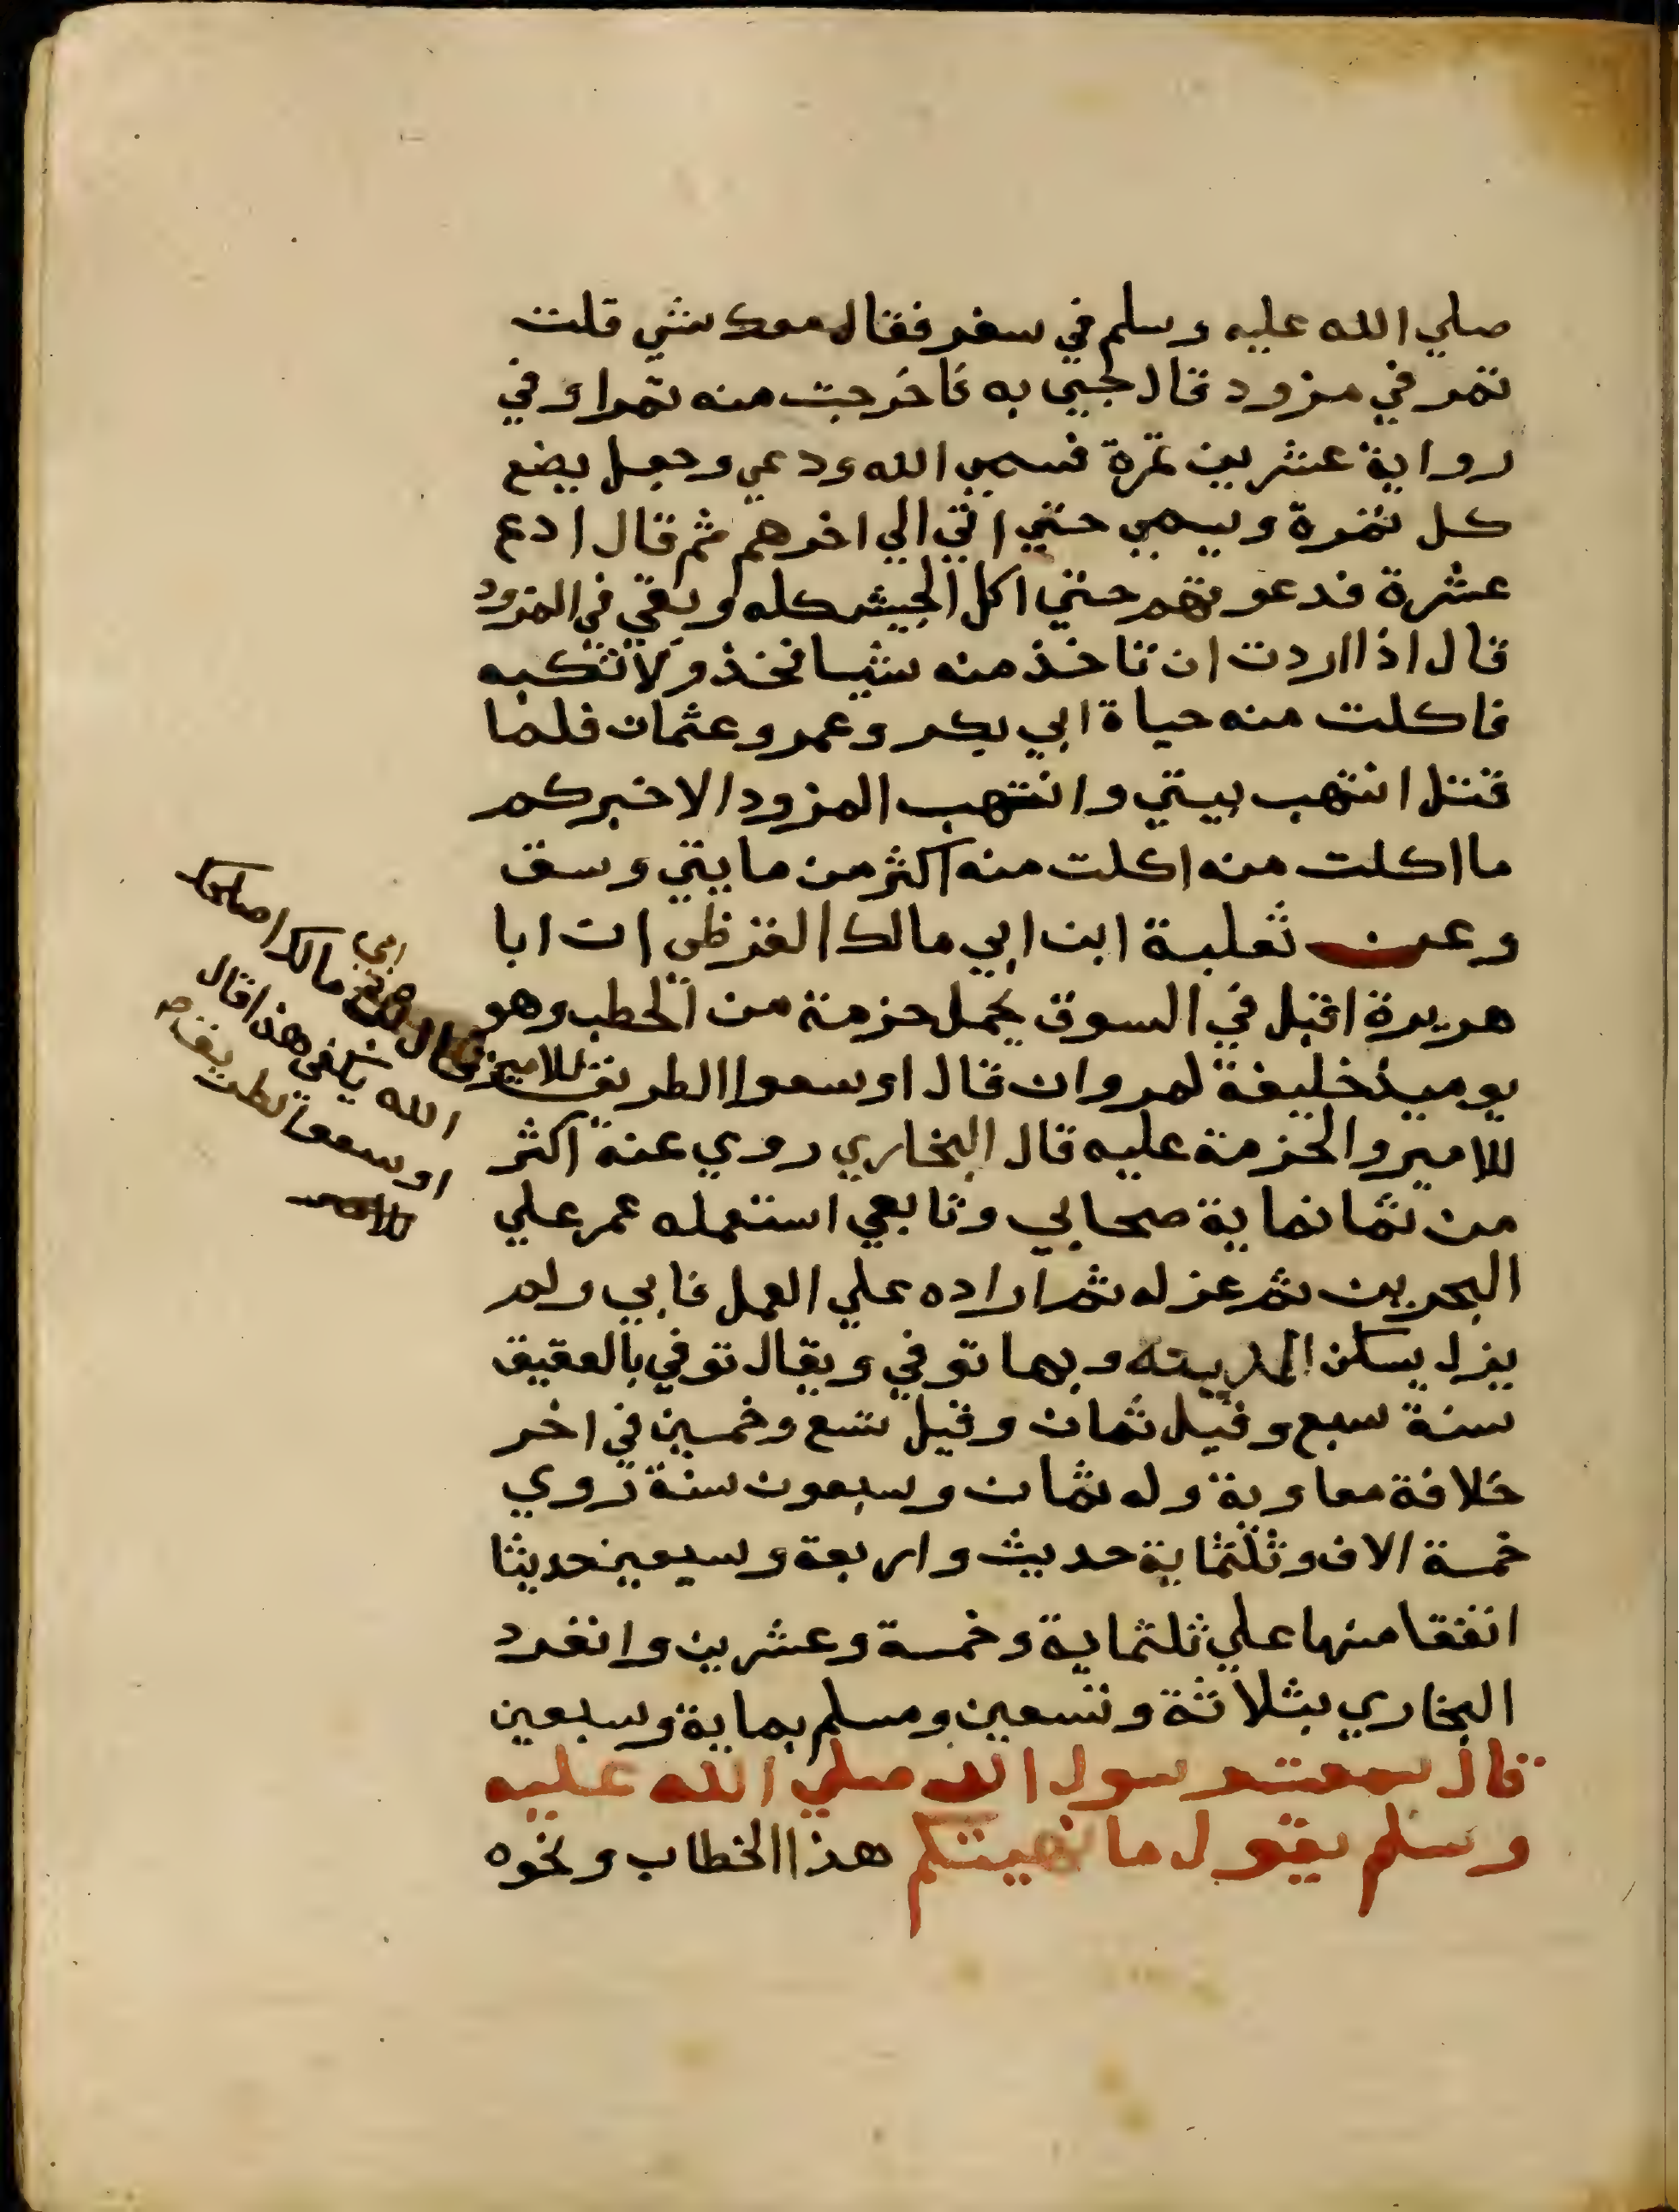 صلي الله عليه وسلم في سفر فقال معك شي قلت
تمر في مزود قال جيي به فاخرجت منه تمرا وفي
رواية عشرين تمرة فسمي الله ودعي وجعل يضع
كل تمرة ويسمي حتي اتي الي اخرهم ثم قال ادع
عشرة فدعوتهم حتي اكل الجيش كله وبقي في المزود
قال اذا اردت ان تاخذ منه شيا فخذ ولا تكبه
فاكلت منه حياة ابي بكر وعمر وعثمان فلما
قتل انتهب بيتي وانتهب المزود الا خبركم
ما اكلت منه اكلت منه اكثر من مايتي وسق
وعن ثعلبة ابن ابي مالك القرظي ان ابا
هريرة اقبل في السوق يحمل حزمة من الحطب وهو
يوميذ خليفة لمروان قال اوسعوا الطريق للامير
للامير والحزمة عليه قال البخاري روي عنه اكثر
من ثمانماية صحابي وتابعي استعمله عمر علي
البحرين ثم عزله ثم اراده علي العمل فابي ولم
يزل يسكن المدينه وبها توفي ويقال توفي بالعقيق
سنة سبع وقيل ثمان وقيل تسع وخمسين في اخر
خلافة معاوية وله ثمان وسبعون سنة روي
خمسة الاف وثلثماية حديث واربعة وسبعين حديثا
اتفقا منها علي ثلثماية وخمسة وعشرين وانفرد
البخاري بثلاثة وتسعين ومسلم بماية وسبعين
قال سمعت رسول الله صلي الله عليه
وسلم يقول ما نهيتكم هذا الخطاب ونحوه
ابي
مالك اصلحك
الله يكفي هذا قال
اوسعوا الطريق